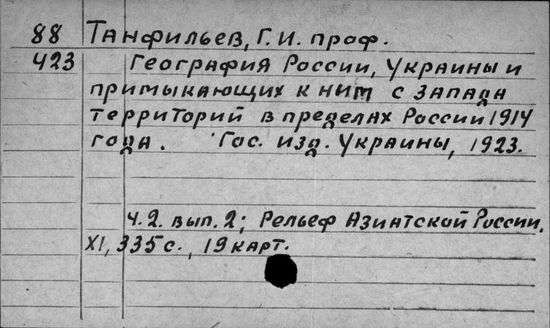 88 Танфильев, Г.И. проф.
423 География России, Украины и
примыкающих к ним с запада
территорий в пределах России 1914
года. Гос. изд. Украины, 1923.
ч.2. вып.2; Рельеф Азиатской России.
XI, 335 с., 19 карт.